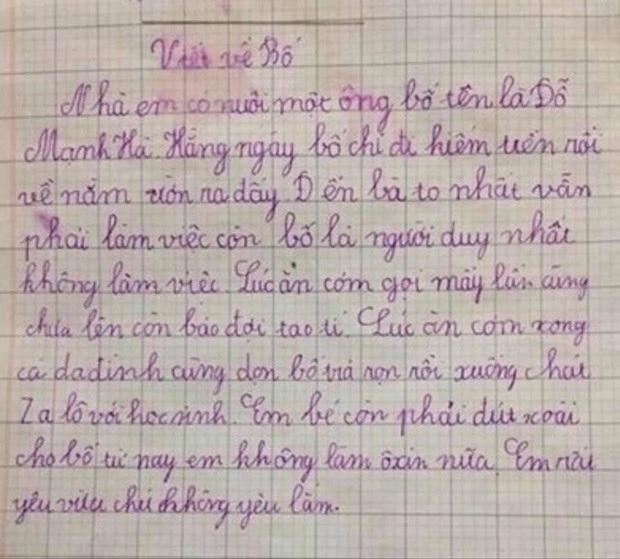 Viết về Bố
Nhà em có nuôi một ông bố tên là Đỗ
Mạnh Hà. Hằng ngày bố chỉ đi kiếm tiền rồi
về nằm ra đấy. Đến bà to nhất vẫn
phải làm việc còn bố là người duy nhất
không làm việc. Lúc ăn cơm gọi mấy lần cũng
chưa lên còn bảo đợi tao tí. Lúc ăn cơm xong
cả da đình cũng dọn bố rồi xuống chát
Za lô với học sinh. Em bé còn phải đút xoài
cho bố từ nay em không làm ôxin nữa. Em rất
yêu chứ không yêu lắm.